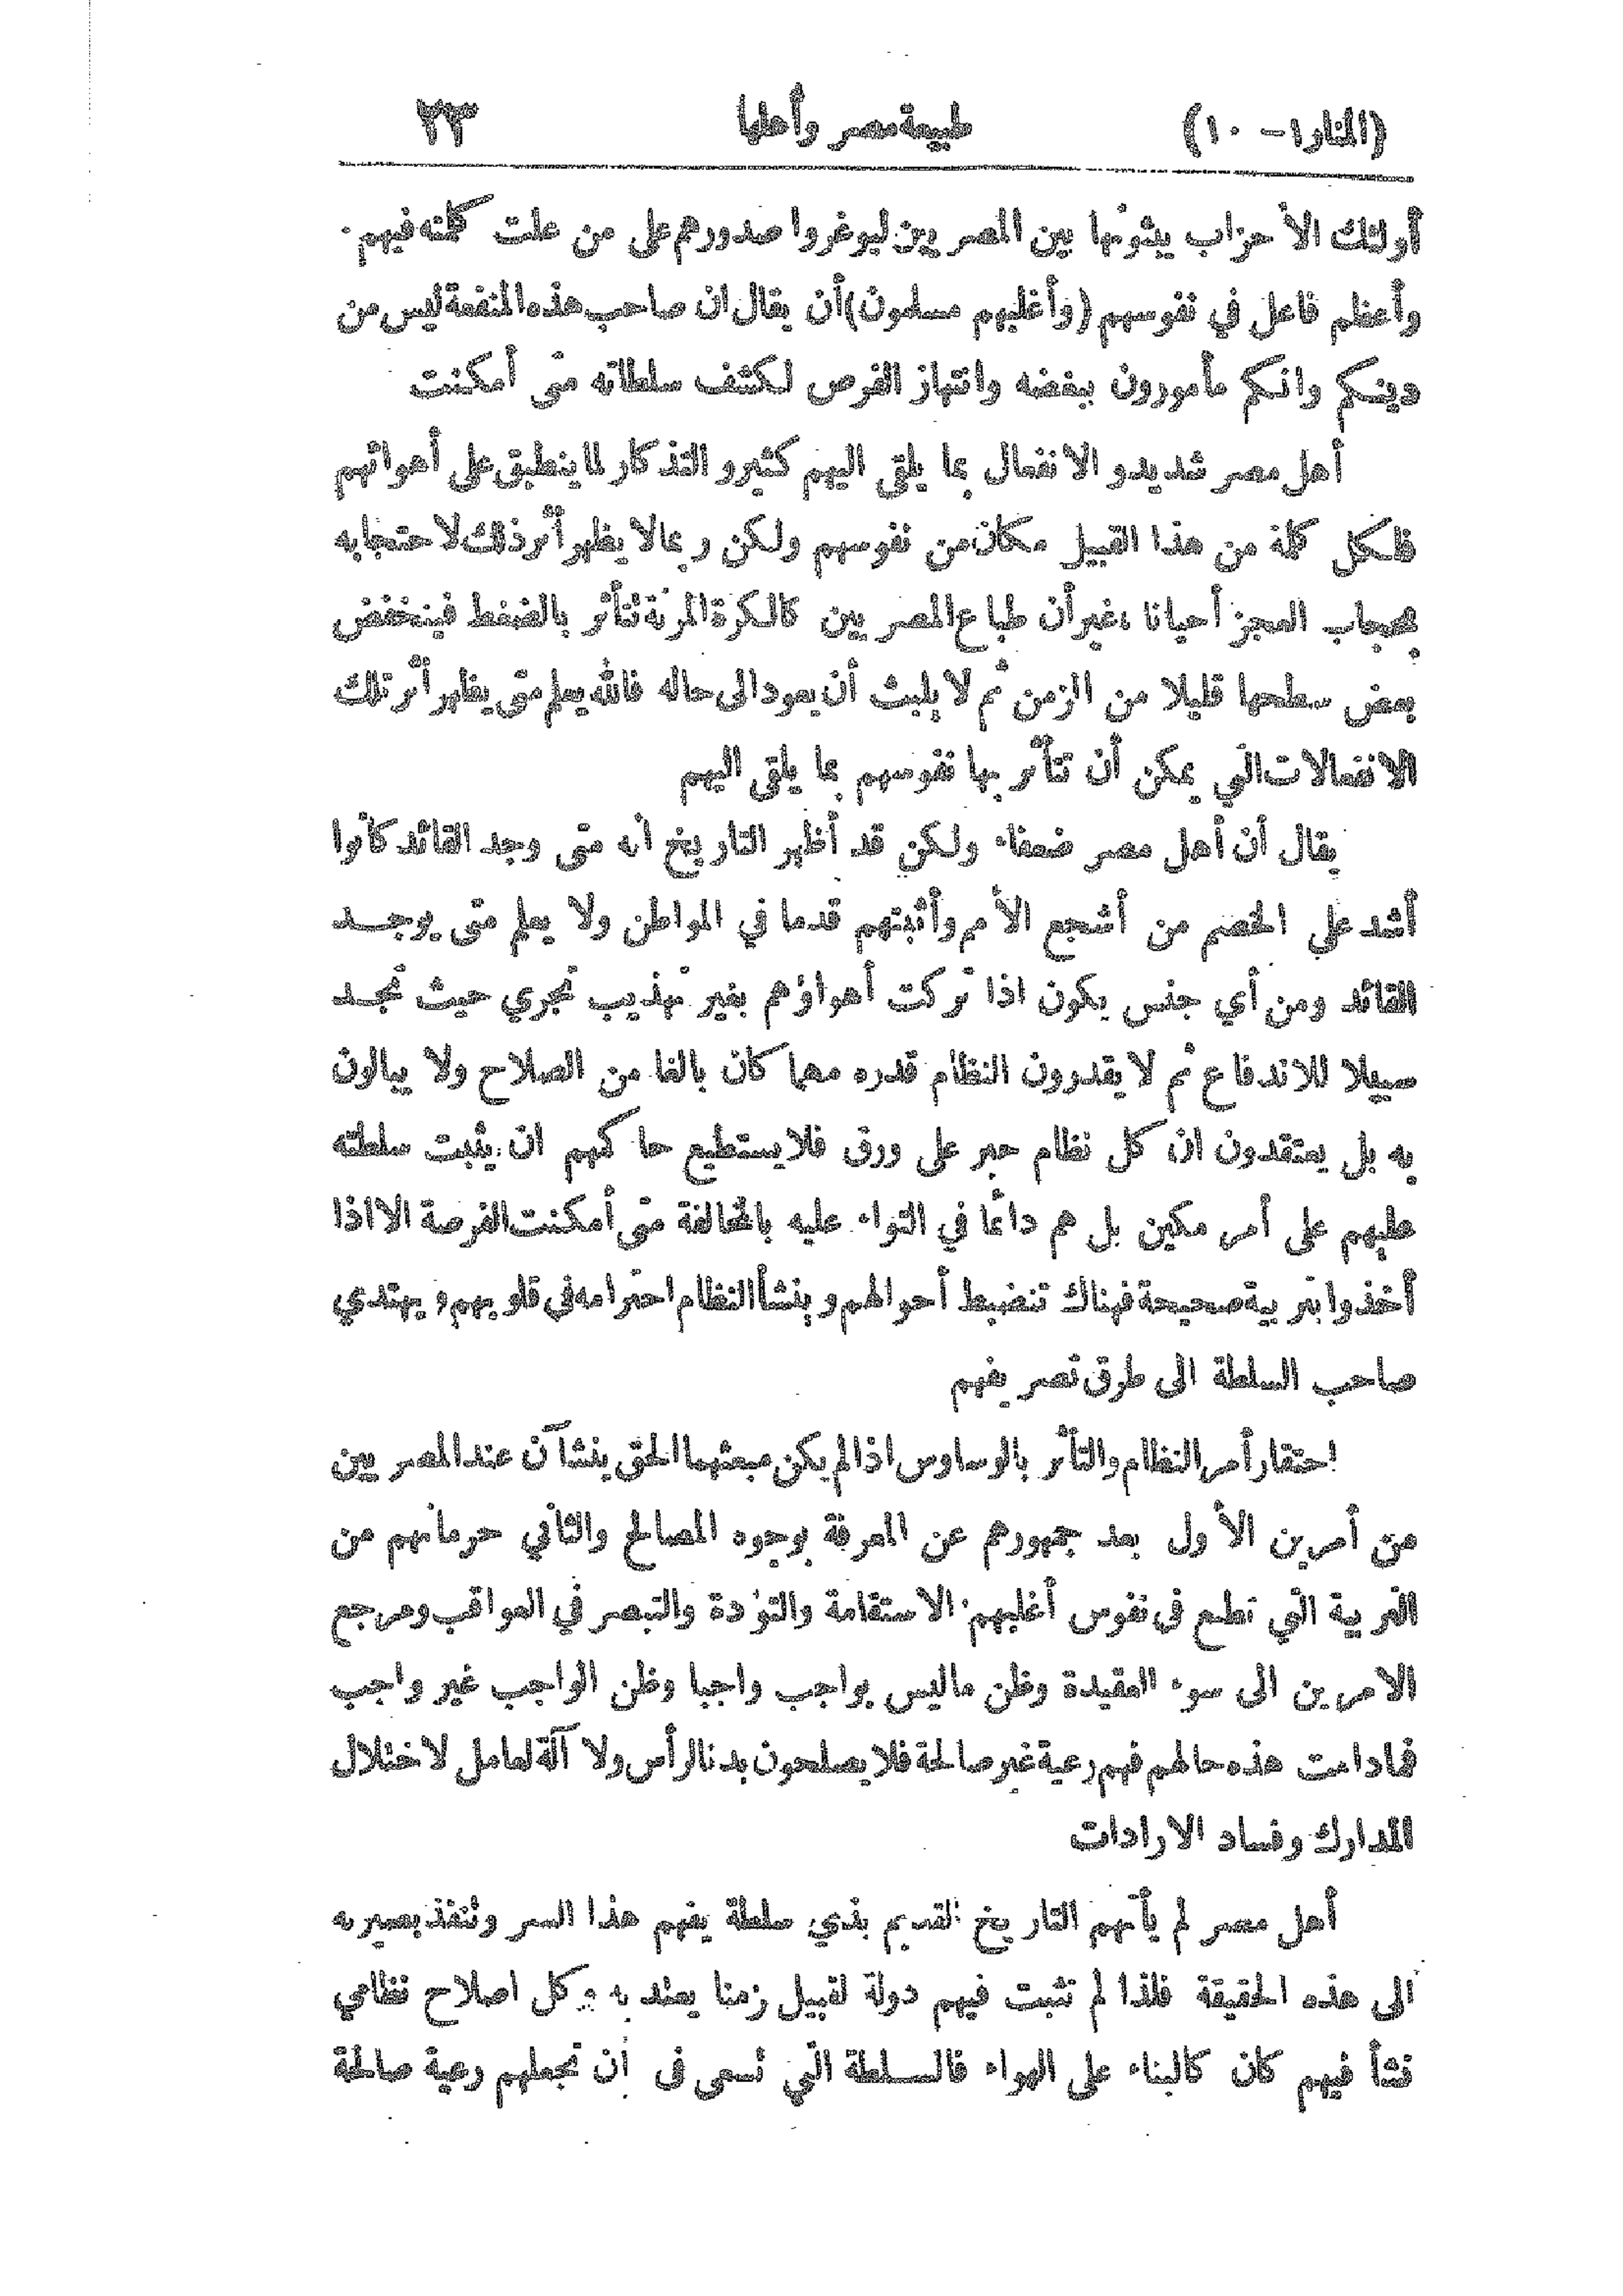 (المنار ١ – ١٠) طبيعة مصر وأهلها ٢٣
أولئك الأحزاب يبثونها بين المصريين ليوغروا صدورهم على من علت كلمته فيهم .
وأعظم فاعل في نفوسهم (وأغلبهم مسلمون) أن يقال ان صاحب هذه المنفعة ليس من
دينكم وانكم مأمورون ببغضه وانتهاز الفرص لكشف سلطانه متى أمكنت
أهل مصر شديدو الانفعال بما يلقى اليهم كثيرو التذكار لما ينطبق على أهوائهم
فلكل كلمة من هذا القبيل مكان من نفوسهم ولكن ربما لا يظهر أثر ذلك لاحتجابه
بحجاب العجز أحيانا ، غير أن طباع المصريين كالكرة المرنة تتأثر بالضغط فينخفض
بعض سطحها قليلا من الزمن ثم لا يلبث أن يعود الى حاله فالله يعلم متى يظهر أثر تلك
الانفعالات التي يمكن أن تتأثر بها نفوسهم بما يلقى اليهم
يقال أن أهل مصر ضعفاء ولكن قد أظهر التاريخ انه متى وجد القائد كانوا
أشد على الخصم من أشجع الأمم وأثبتهم قدما في المواطن ولا يعلم متى يوجد
القائد ومن أي جنس يكون اذا تركت أهواؤهم بغير تهذيب تجري حيث تجد
سبيلا للاندفاع ثم لا يقدرون النظام قدره مهما كان بالغا من الصلاح ولا يبالون
به بل يعتقدون ان كل نظام حبر على ورق فلا يستطيع حاكمهم ان يثبت سلطته
عليهم على أمر مكين بل هم دائما في التواء عليه بالمخالفة متى أمكنت الفرصة الا اذا
أخذوا بتربية صحيحة فهناك تنضبط أحوالهم وينشأ النظام احترامه في قلوبهم ، ويهتدي
صاحب السلطة الى طرق تصريفهم
احتقار أمر النظام والتأثر بالوساوس اذا لم يكن مبعثهما الحق ينشآن عند المصريين
من أمرين الأول بعد جمهورهم عن المعرفة بوجوه المصالح والثاني حرمانهم من
التربية التي تطبع في نفوس أغلبهم الاستقامة والتؤدة والتبصر في العواقب ومرجع
الامرين الى سوء العقيدة وظن ماليس بواجب واجبا وظن الواجب غير واجب
فمادامت هذه حالهم فهم رعية غير صالحة فلا يصلحون بدنا لرأس ولا آلة لعامل لاختلال
المدارك وفساد الارادات
أهل مصر لم يأتهم التاريخ القديم بذي سلطة يفهم هذا السر وتنفذ بصيرته
الى هذه الحقيقة فلذا لم تثبت فيهم دولة لقبيل زمنا يعتد به وكل اصلاح نظامي
نشأ فيهم كان كالبناء على الهواء فالسلطة التي تسعى في أن تجعلهم رعية صالحة